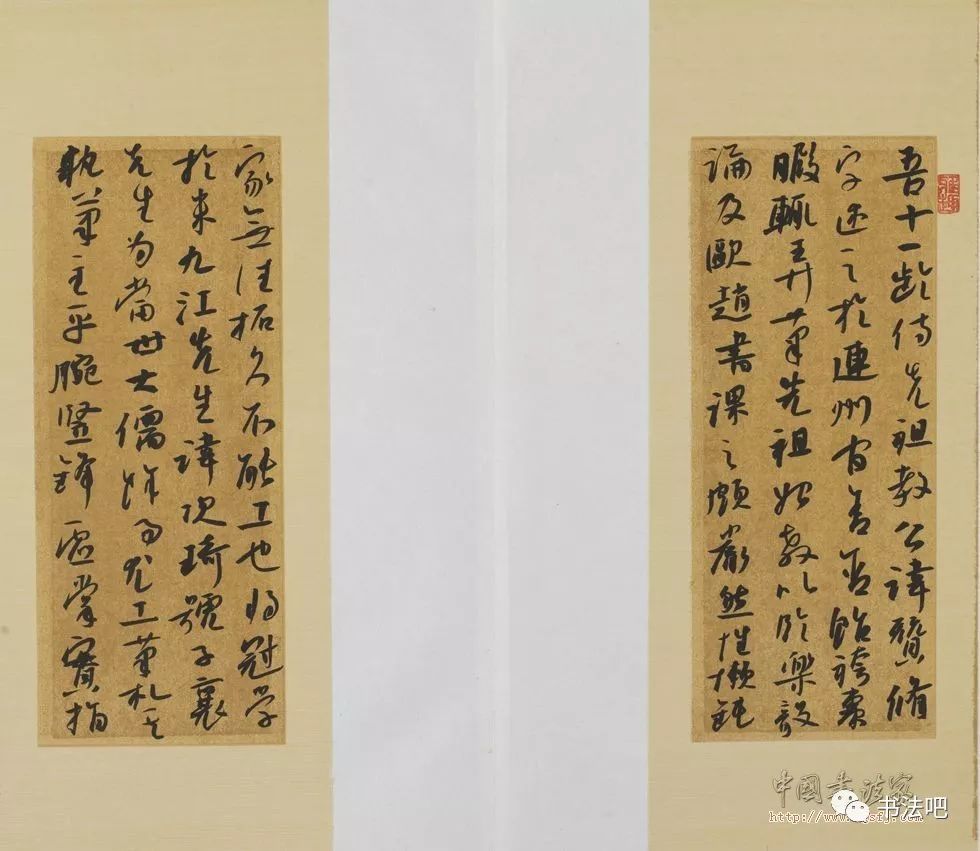 吾十一齡侍先祖教公諱贊脩
字述之於連州官舍含飴袴棗
暇輒弄筆先祖始教以臨樂毅
論及歐趙書課之頗嚴然性懶鈍
家無佳拓久不能工也將冠學
於朱九江先生諱次琦號子襄
先生為當世大儒餘事尤工筆札其
執筆主平腕竪鋒虛掌實指
中國書法家
书法吧